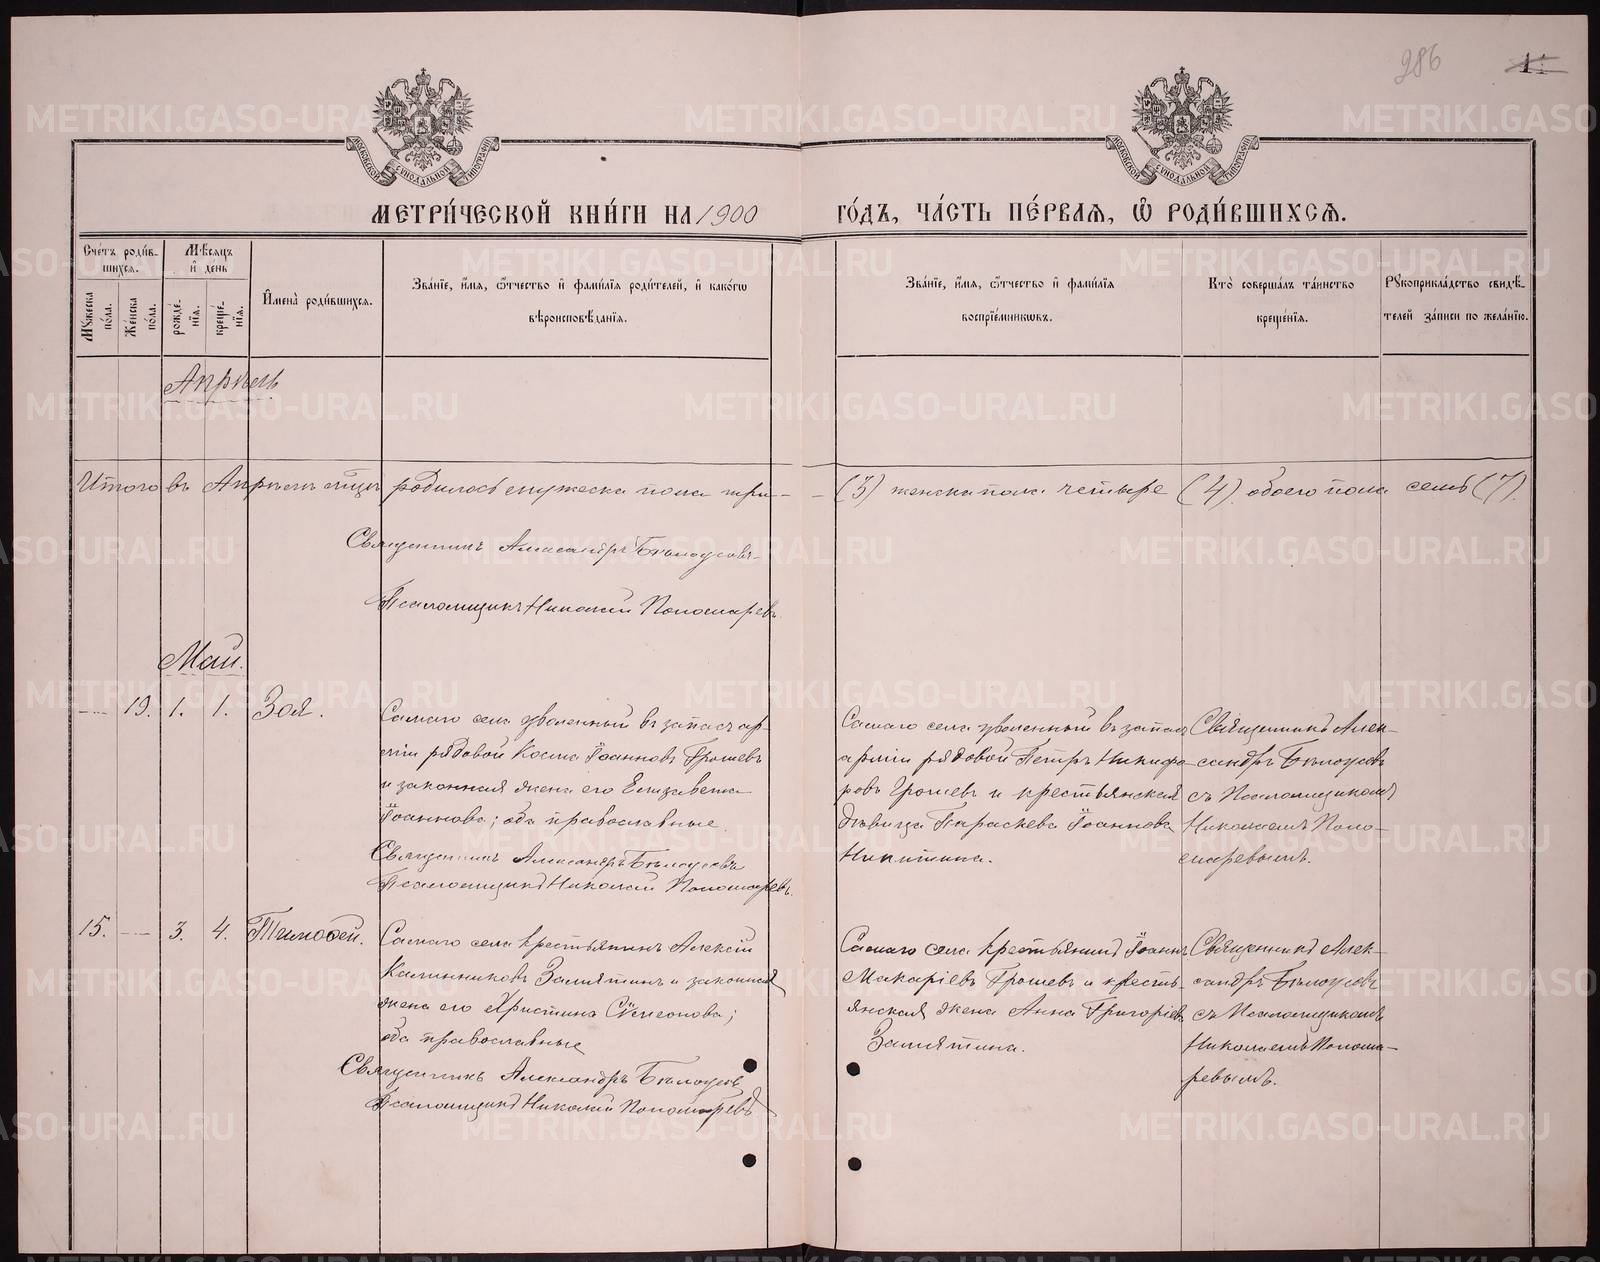 286
1
МОСКОВСКОЙ СѴНОДАЛЬНОЙ ТИПОГРАФІИ
МОСКОВСКОЙ СѴНОДАЛЬНОЙ ТИПОГРАФІИ
МЕТРИ́ЧЕСКОЙ КНИ́ГИ НА 1900 ГО́ДЪ, ЧА́СТЬ ПЕ́РВАЯ, Ѿ РОДИ́ВШИХСЯ.
Сче́тъ роди́в-
шихся.
Мѣ́сяцъ
и҆ де́нь
Мꙋ́жеска
по́ла.
Же́нска
по́ла.
рожде́-
нїя.
креще́-
нїя.
И҆мена̀ роди́вшихся.
Зва́нїе, и҆́мя, ѻ҆́тчество и҆ фами́лїя роди́телей, и҆ како́гѡ
вѣроисповѣ́данїя.
Зва́нїе, и҆́мя, ѻ҆́тчество и҆ фами́лїя
воспрїе́мникѡвъ.
Кто̀ соверша́лъ та́инство
креще́нїя.
Рꙋкоприкла́дство свидѣ́-
телей за́писи по жела́нїю.
Апрѣль
Итого въ Апрѣлѣ мѣсяцѣ родилось мужеска пола три — (3) женска пола четыре (4) обоего пола семь (7).
Священникъ Александръ Бѣлоусовъ
Псаломщикъ Николай Пономаревъ
Май.
— 19. 1. 1. Зоя.
Самаго села уволенный въ запасъ ар-
міи рядовой Косма Іоанновъ Грошевъ
и законная жена его Елизавета
Іоаннова; оба православные.
Священникъ Александръ Бѣлоусовъ
Псаломщикъ Николай Пономаревъ.
Самаго села уволенный въ запасъ
арміи рядовой Петръ Никифо-
ровъ Грошевъ и крестьянская
дѣвица Параскева Іоаннова
Никитина.
Священникъ Алек-
сандръ Бѣлоусовъ
съ Псаломщикомъ
Николаемъ Поно-
маревымъ.
15. — 3. 4. Тимоѳей.
Самаго села крестьянинъ Алексій
Калинниковъ Замятинъ и законная
жена его Христина Сѵмеонова;
оба православные
Священникъ Александръ Бѣлоусовъ
Псаломщикъ Николай Пономаревъ
Самаго села крестьянинъ Іоаннъ
Макаріевъ Грошевъ и кресть-
янская жена Анна Григоріева
Замятина.
Священникъ Алек-
сандръ Бѣлоусовъ
съ Псаломщикомъ
Николаемъ Понома-
ревымъ.
METRIKI.GASO-URAL.RU